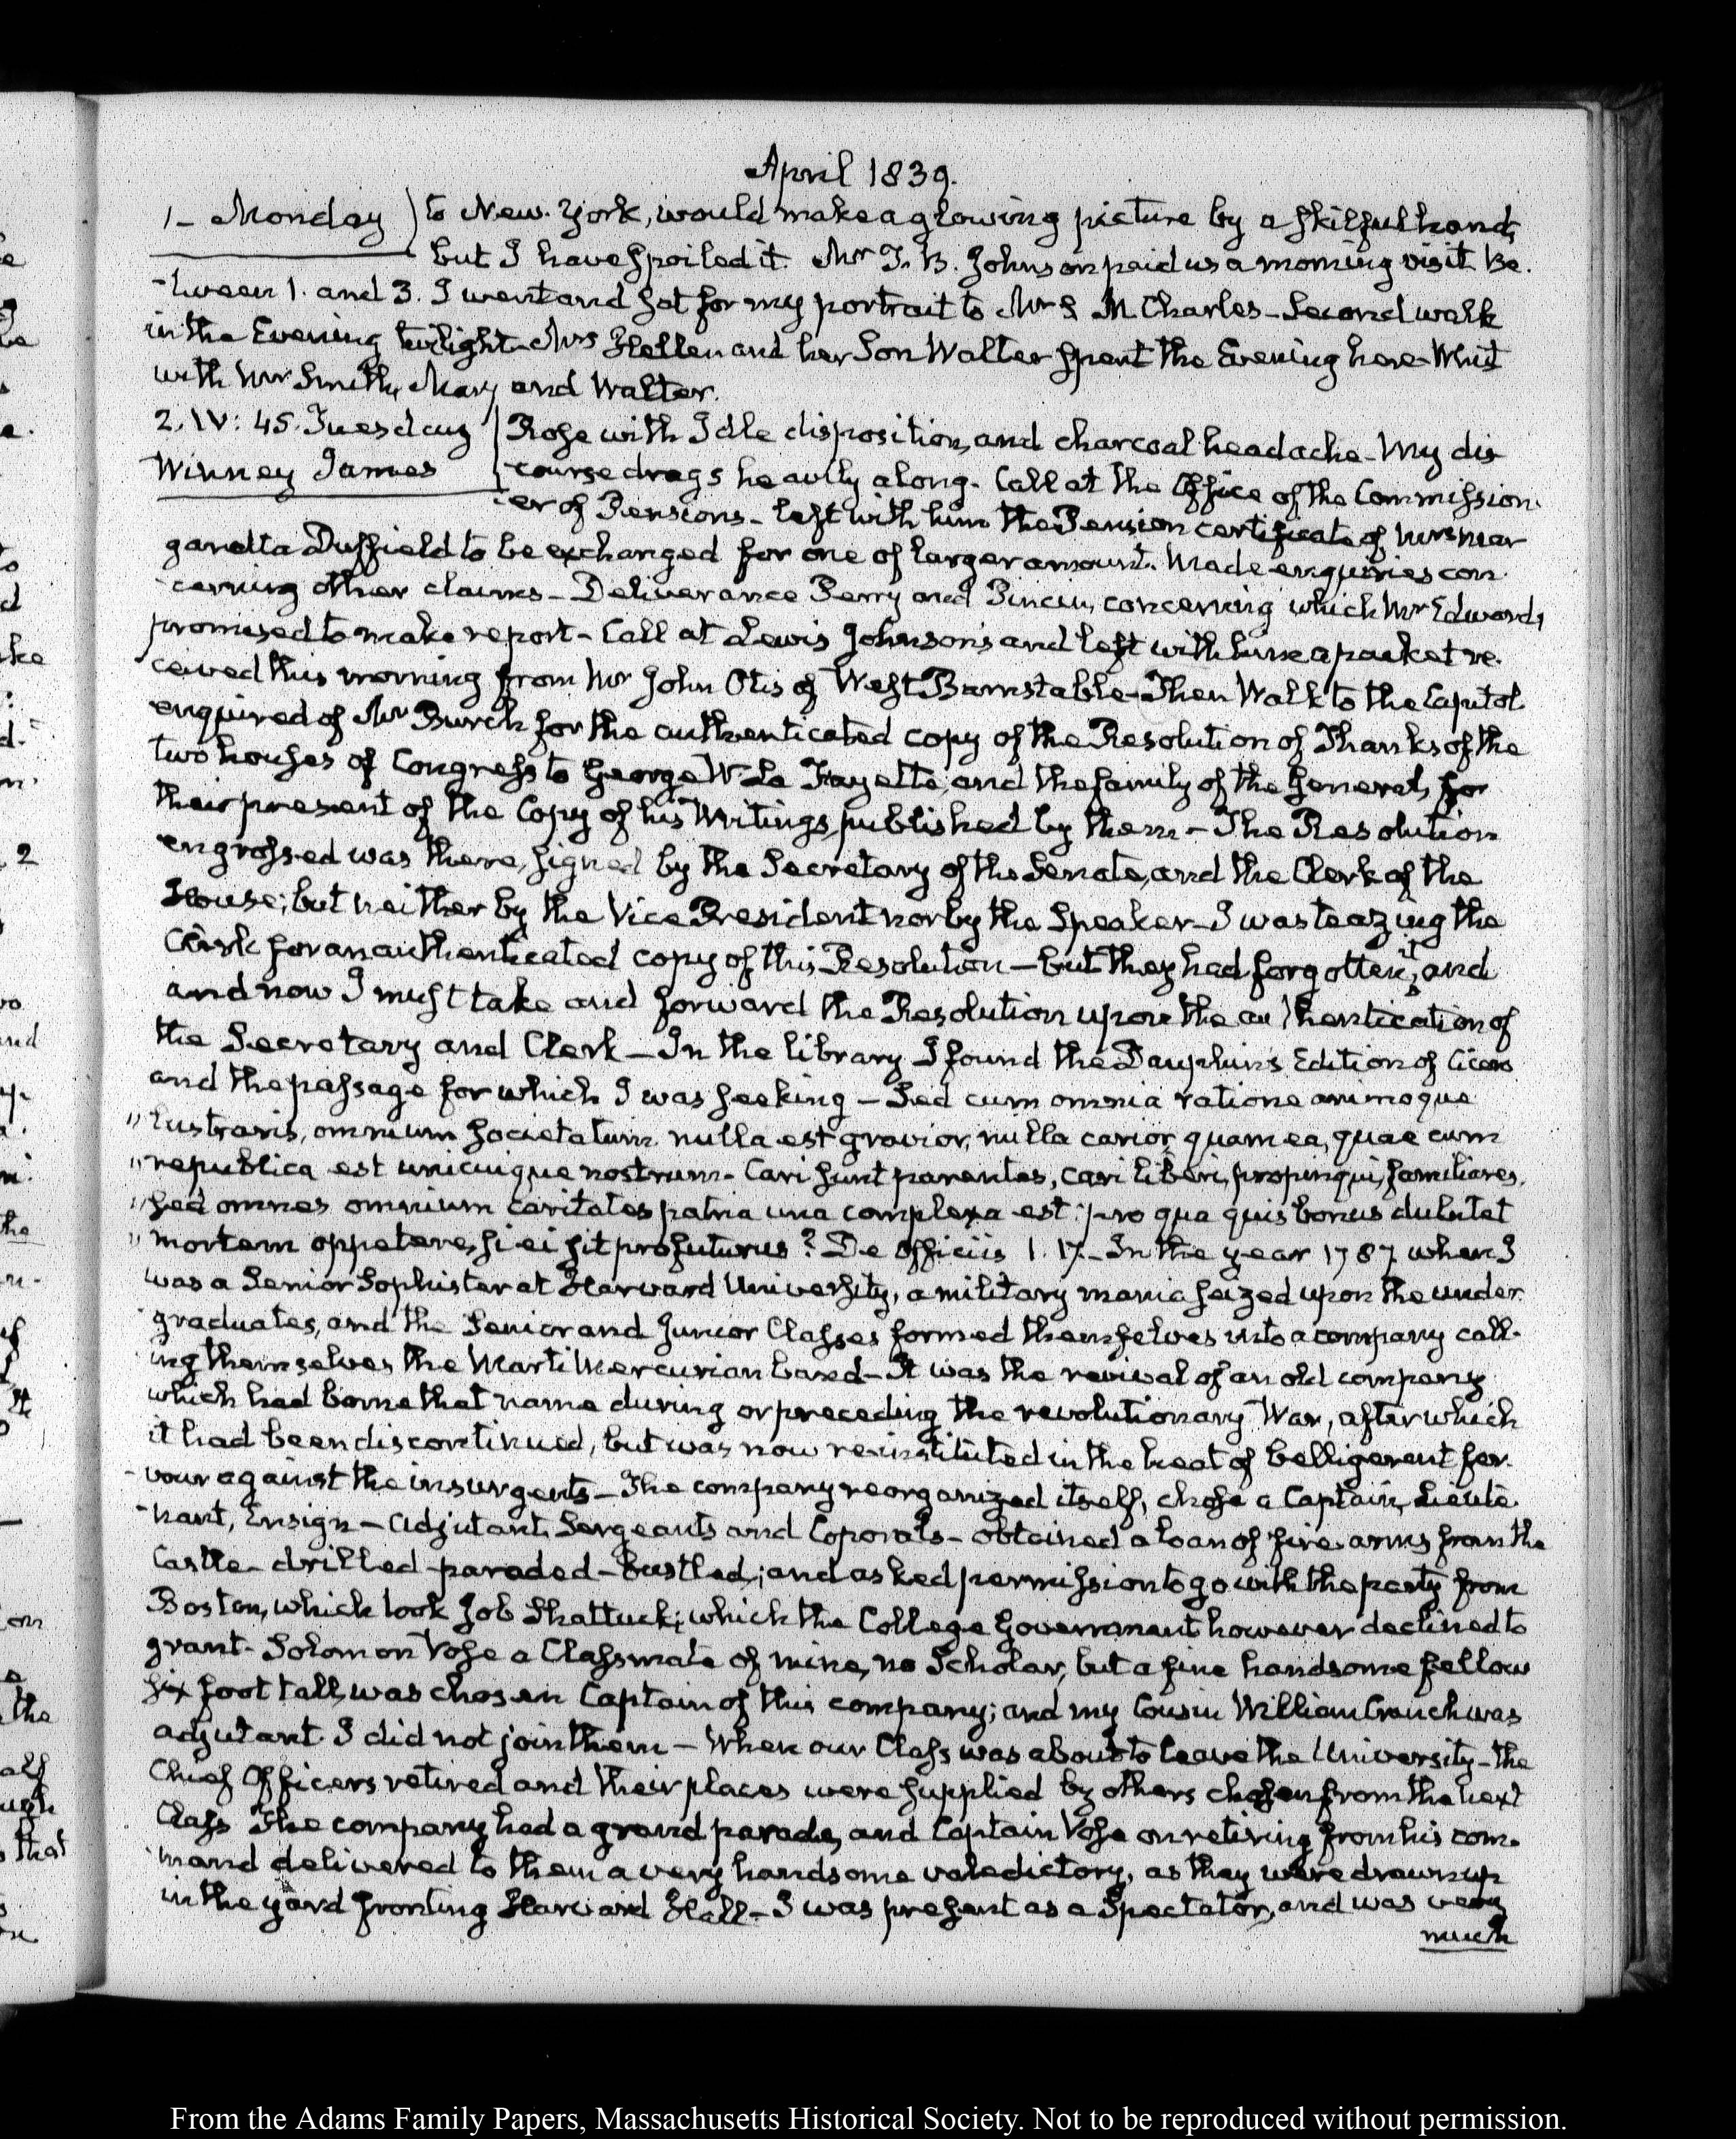 April 1839.
1– Monday) to New-York, would make a glowing picture by a skilful hand,
but I have spoiled it. Mr T. B. Johnson paid us a morning visit. Be-
-tween 1. and 3. I went and sat for my portrait to Mr S. M. Charles– Second walk
in the Evening twilight– Mrs Hellen and her Son Walter spent the Evening here– Whist
with Mr Smith, Mary and Walter.
2. IV: 45. Tuesday
Winney James
Rose with Idle disposition, and charcoal headache– My dis-
-course drags heavily along. Call at the Office of the Commission-
-er of Pensions– left with him the Pension certificate of Mrs Mar-
garetta Duffield to be exchanged for one of larger amount. Made enquiries con-
-cerning other claims– Deliverance Perry and concerning which Mr Edwards
promised to make report– Call at Lewis Johnson's and left with him a packet re-
ceived this morning from Mr John Otis of West Barnstable– Then Walk to the Capitol
enquired of Mr Burch for the authenticated copy of the Resolution of Thanks of the
two houses of Congress to George W. La Fayette, and the family of the General, for
their present of the Copy of his Writings, published by them– The Resolution
engrossed was there, signed by the Secretary of the Senate, and the Clerk of the
House; but neither by the Vice President nor by the Speaker– I was teazing the
Clerk for an authenticated copy of this Resolution– but they had forgotten it, and
and now I must take and forward the Resolution upon the authentication of
the Secretary and Clerk– In the library I found the Dauphin's Edition of Cicero
and the passage for which I was seeking– Sed cum omnia ratione animoque
"lustraris, omnium societatum nulla est gravior, nulla carior, quam ea, quae cum
"republica est unicuique nostrum. Cari sunt parentes, cari liberi, propinqui, familiares,
"sed omnes omnium caritates patria una complexa est: pro qua quis bonus dubitet
"mortem oppetere, si ei sit profuturus? De Officiis 1. 17.– In the year 1787. when I
was a Senior Sophister at Harvard University, a military mania seized upon the under
graduates, and the Senior and Junior Classes formed themselves into a company call-
ing themselves the Marti Mercurian band– It was the revival of an old company
which had borne that name during or preceding the revolutionary War, after which
it had been discontinued, but was now re-instituted in the heat of belligerent fer-
-vour against the insurgents– The company reorganized itself, chose a Captain, Lieute-
-nant, Ensign– Adjutant, Sergeants and Coporals– obtained a loan of fire-arms from the
Castle– drilled– paraded– bustled; and asked permission to go with the party from
Boston, which took Job Shattuck; which the College Government however declined to
grant– Solomon Vose a Classmate of mine, no Scholar, but a fine handsome fellow
six foot tall, was chosen Captain of this company; and my Cousin William Cranch was
adjutant. I did not join them– When our Class was about to leave the University– the
Chief Officers retired and their places were supplied by others chosen from the next
Class The company had a grand parade, and Captain Vose on retiring from his com-
-mand delivered to them a very handsome valedictory, as they were drawn up
in the yard fronting Harvard Hall– I was present as a Spectator, and was very
much
From the Adams Family Papers, Massachusetts Historical Society. Not to be reproduced without permission.